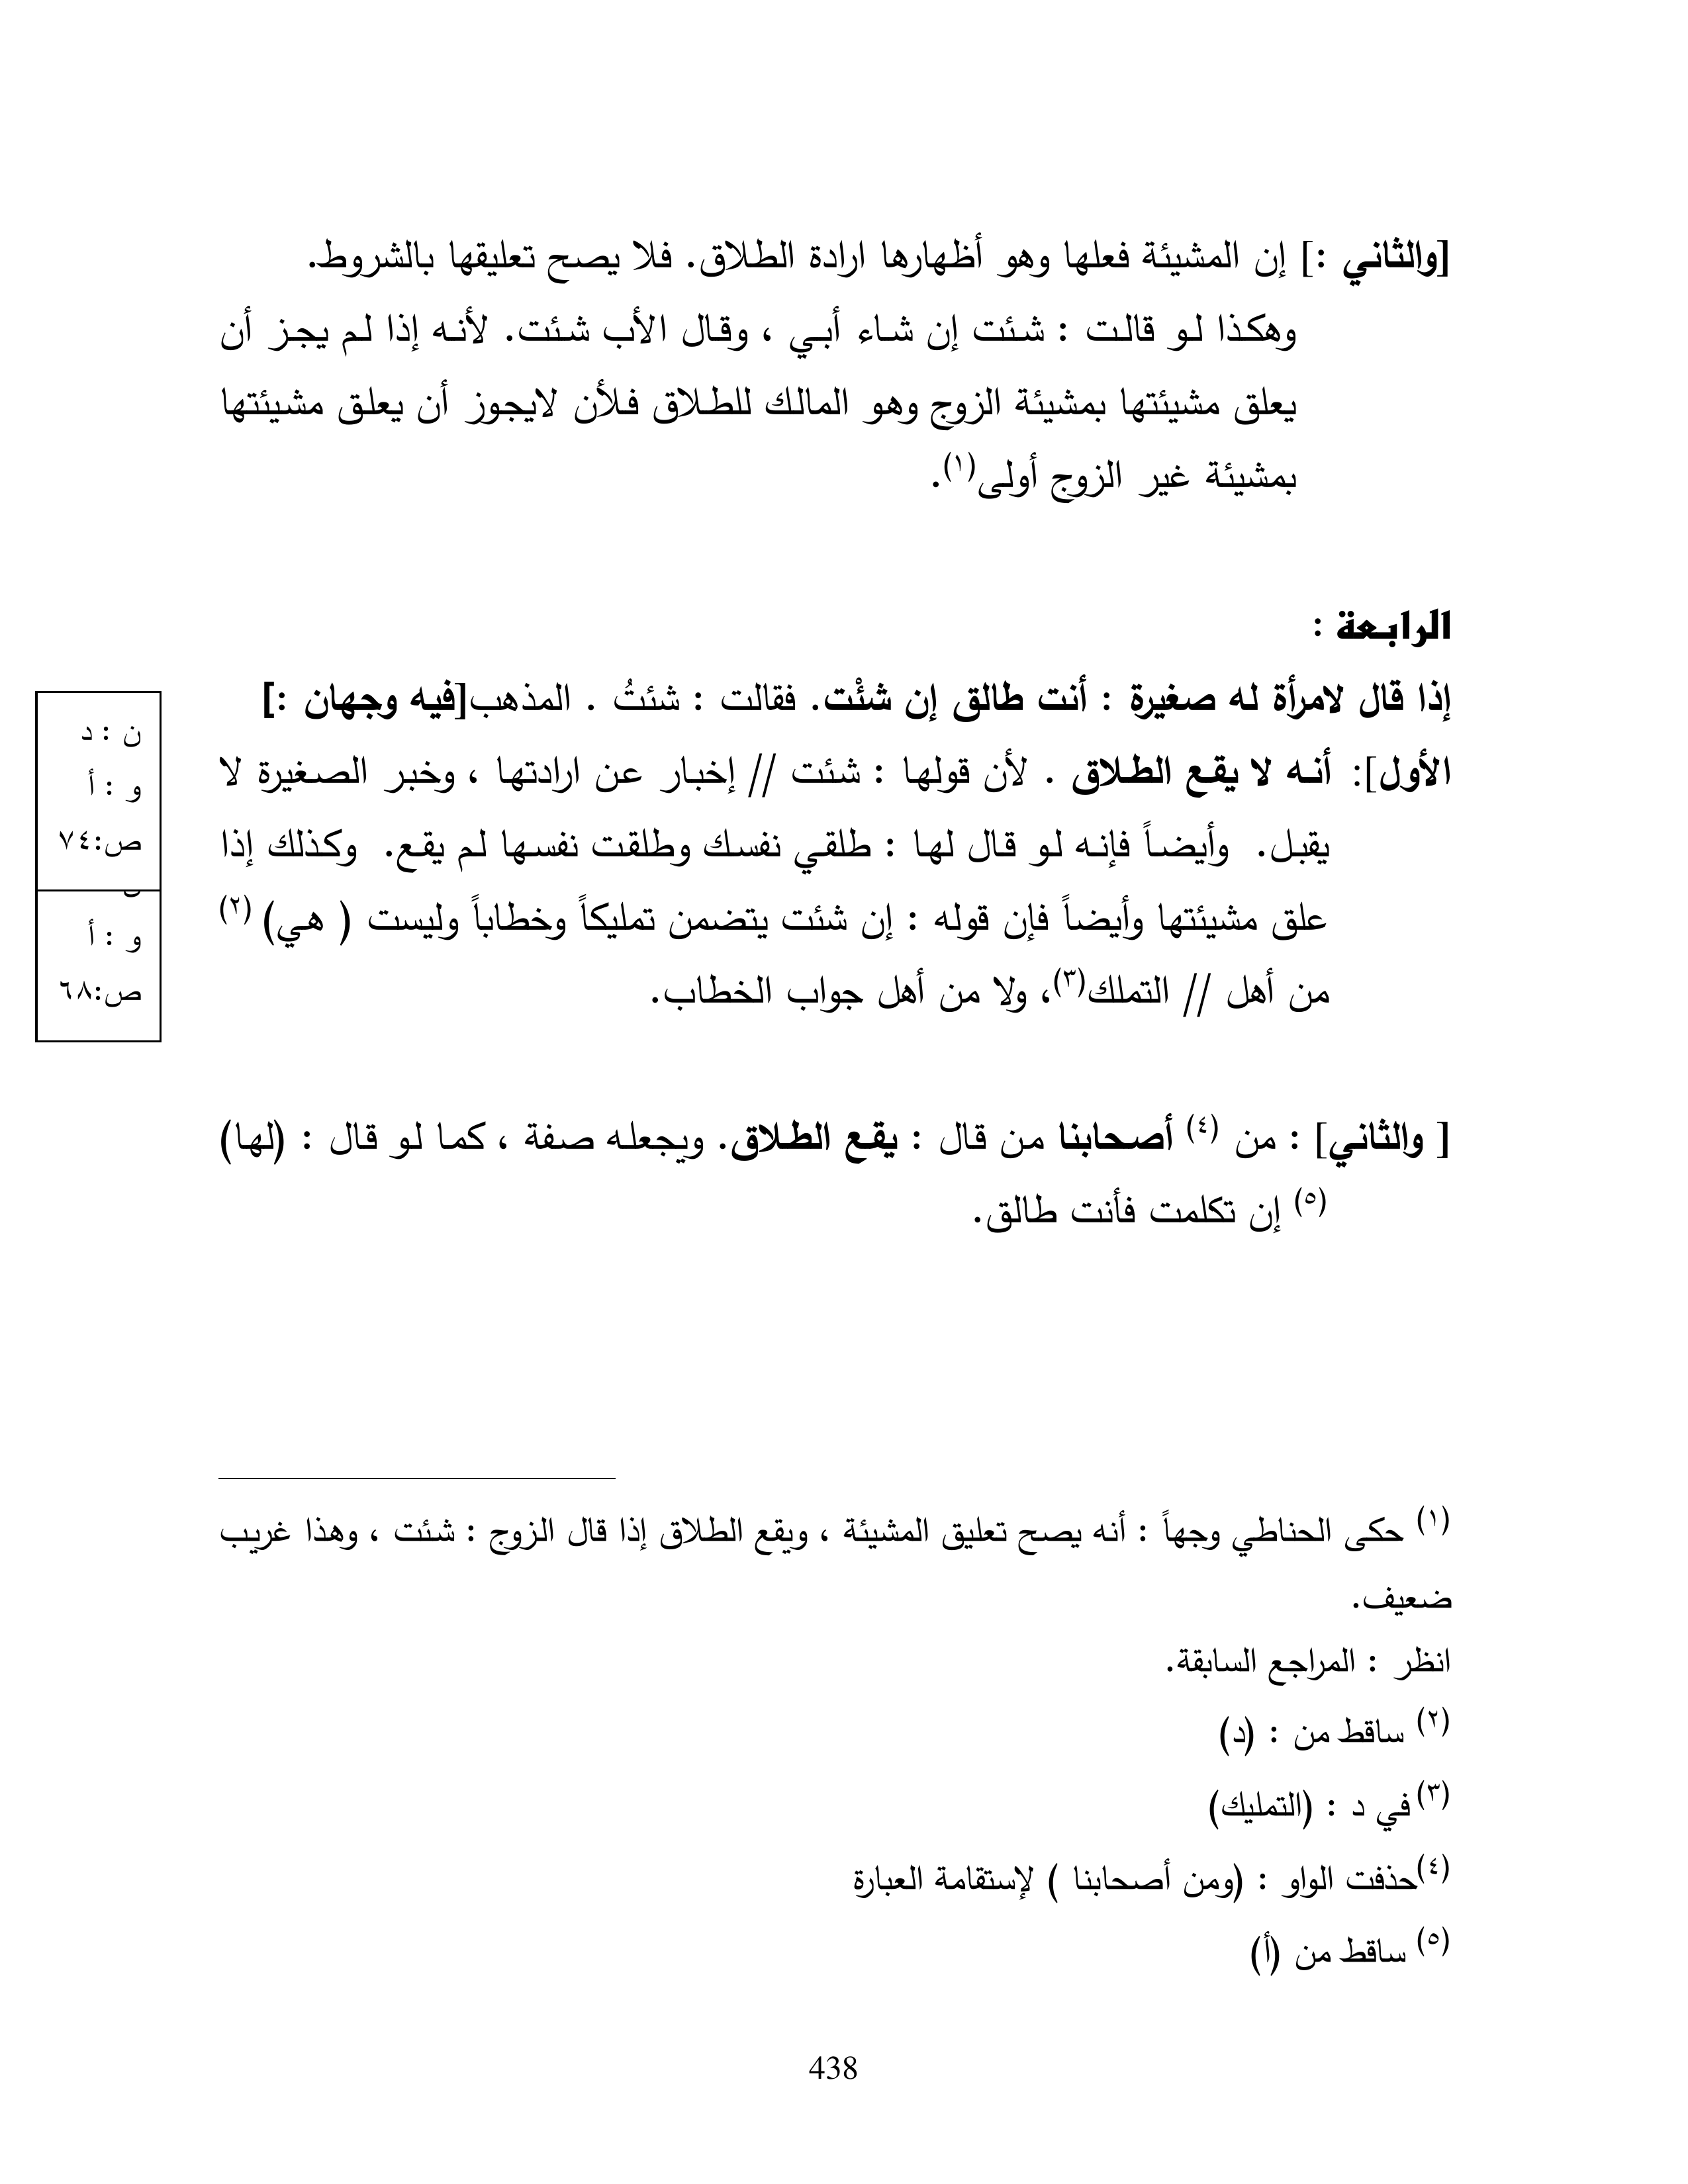 [والثاني :] إن المشيئة فعلها وهو أظهارها ارادة الطلاق. فلا يصح تعليقها بالشروط.
وهكذا لو قالت : شئت إن شاء أبي ، وقال الأب شئت. لأنه إذا لم يجز أن
يعلق مشيئتها بمشيئة الزوج وهو المالك للطلاق فلأن لايجوز أن يعلق مشيئتها
بمشيئة غير الزوج أولى(١).
الرابعة :
إذا قال لامرأة له صغيرة : أنت طالق إن شئْت. فقالت : شئتُ . المذهب[فيه وجهان :]
الأول]: أنه لا يقع الطلاق . لأن قولها : شئت // إخبار عن ارادتها ، وخبر الصغيرة لا
يقبل. وأيضاً فإنه لو قال لها : طلقي نفسك وطلقت نفسها لم يقع. وكذلك إذا
علق مشيئتها وأيضاً فإن قوله : إن شئت يتضمن تمليكاً وخطاباً وليست ( هي) (٢)
من أهل // التملك(٣)، ولا من أهل جواب الخطاب.
[ والثاني] : من (٤) أصحابنا من قال : يقع الطلاق. ويجعله صفة ، كما لو قال : (لها)
(٥) إن تكلمت فأنت طالق.
ن : د
و : أ
ص:٧٤
و : أ
ص:٦٨
(١) حكى الحناطي وجهاً : أنه يصح تعليق المشيئة ، ويقع الطلاق إذا قال الزوج : شئت ، وهذا غريب
ضعيف.
انظر : المراجع السابقة.
(٢) ساقط من : (د)
(٣) في د : (التمليك)
(٤)حذفت الواو : (ومن أصحابنا ) لإستقامة العبارة
(٥) ساقط من (أ)
438